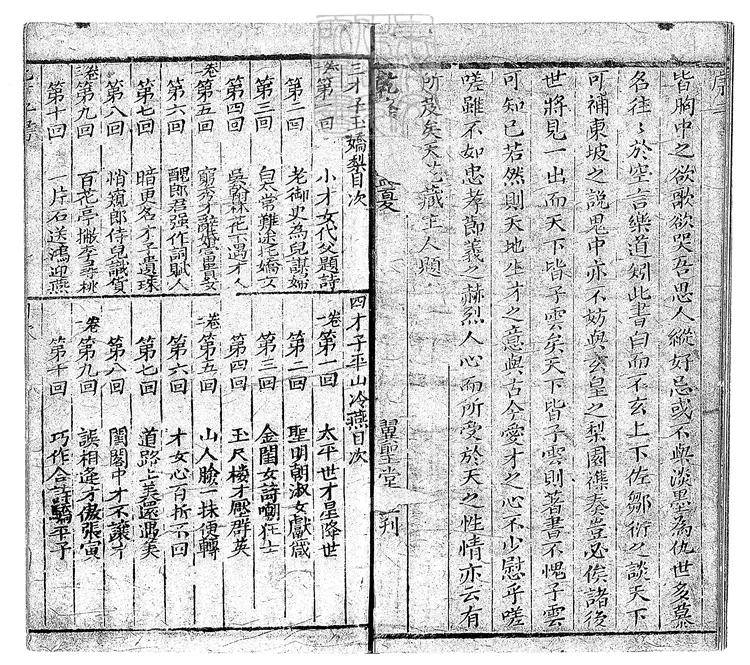 皆胸中之欲歌欲哭吾思人縱好忌或不與淡墨為仇世多慕
名往々於空言樂道矧此書白而不玄上下佐鄒衍之談天下
可補東坡之說鬼中亦不妨與玄皇之梨園雜奏豈必俟諸後
世將見一出而天下皆子雲矣天下皆子雲則著書不愧子雲
可知已若然則天地生才之意與古今愛才之心不少慰乎嗟
嗟雖不如忠孝節義之赫烈人心而所受於天之性情亦云有
所及矣天花藏主人題
翼聖堂 刊
三才子玉嬌梨目次
第一回 小才女代父題詩
第二回 老御史為兒謀婦
第三回 白太常難途托嬌女
第四回 吳翰林花下遇才人
卷二第五回 窮秀才辭婚富貴女
第六回 醜郎君強作詞賦人
第七回 暗更名才子遺珠
第八回 悄窺郎侍兒識貨
卷三第九回 百花亭撇李尋桃
第十回 一片石送鴻迎燕
四才子平山冷燕目次
卷一第一回 太平世才星降世
第二回 聖明朝淑女獻箴
第三回 金閨女詩嘲狂士
第四回 玉尺樓才壓群英
卷二第五回 山人臉一抹便轉
第六回 才女心百折不回
第七回 道路上美還遇美
第八回 閨閣中才不讓才
卷三第九回 誤相逢才傲張寅
第十回 巧作合詩驕平子